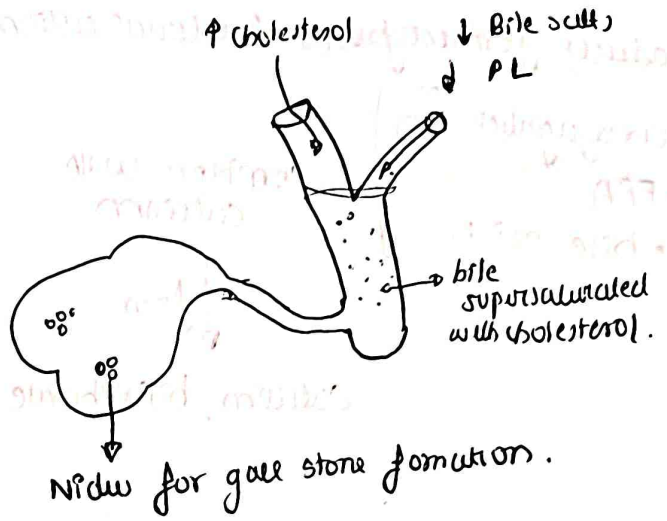 ↑ cholesterol
↓ Bile salts
↓ PL
bile
supersaturated
with cholesterol.
Nidus for gall stone formation.